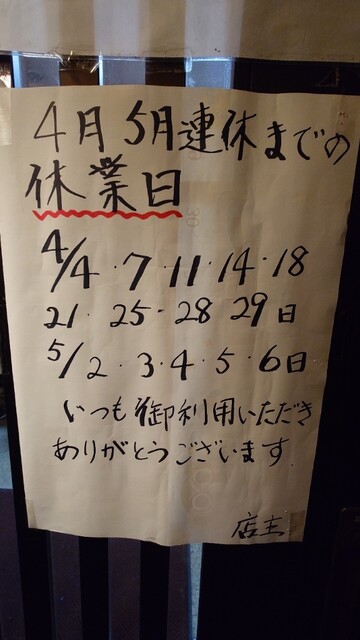 4月5月連休までの
休業日
4/4・7・11・14・18
21・25・28 29日
5/2・3・4・5・6日
いつも御利用いただき
ありがとうございます
店主